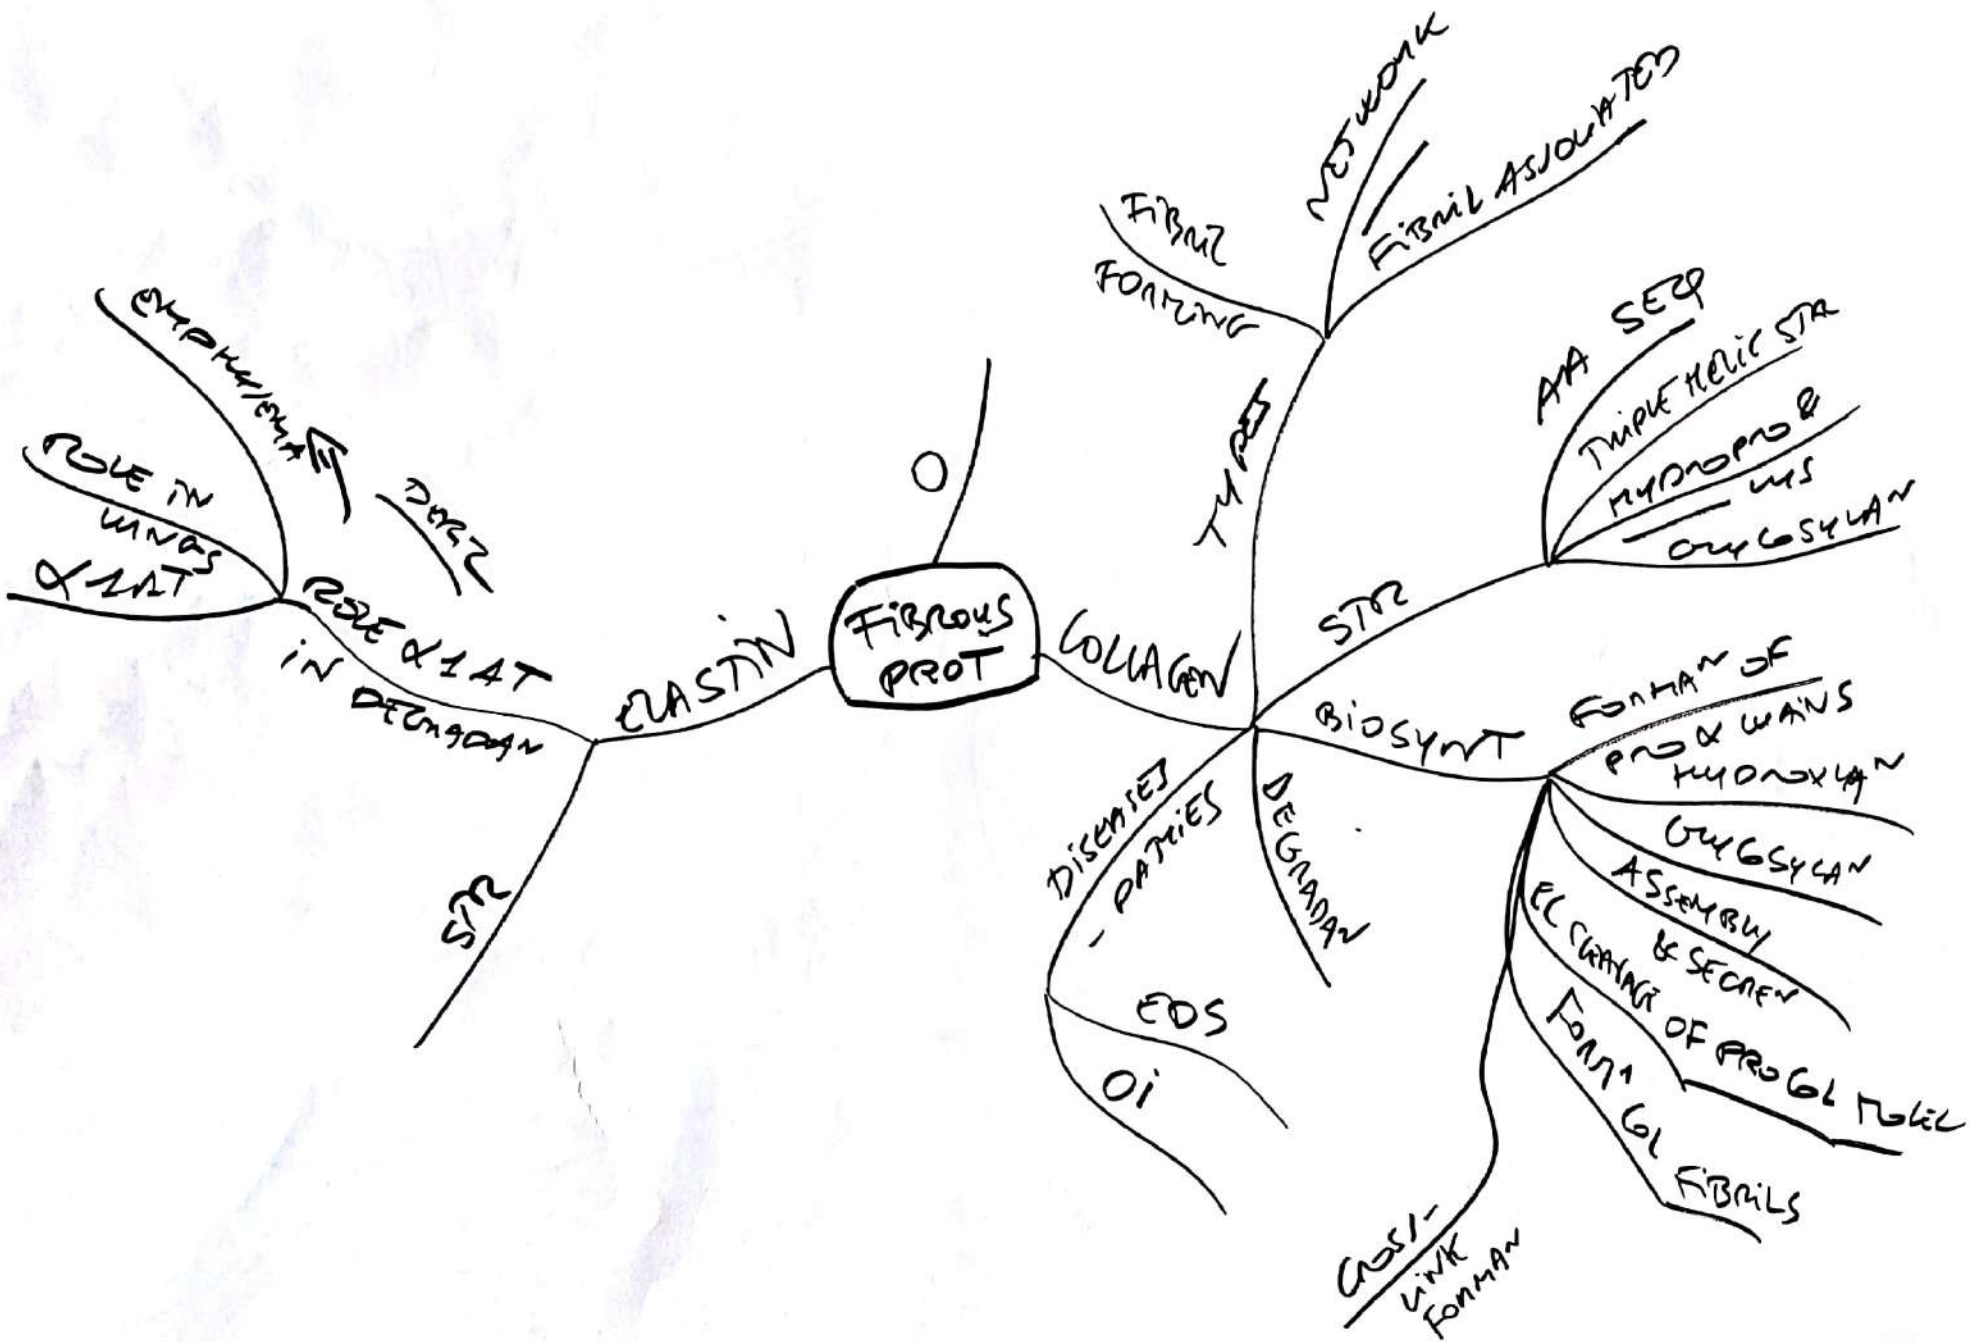 FIBROUS
PROT
O
COLLAGEN
TYPES
FIBRIL
FORMING
NETWORK
FIBRIL ASSOCIATED
STR
AA SEQ
TRIPLE HELIC STR
HYDROPRO &
LYS
GLYCOSYLAN
BIOSYNT
FORMAN OF
PRO α CHAINS
HYDROXLAN
GLYCOSYLAN
ASSEMBLY
& SECREN
EC CLEAVAGE OF PROCOL MOLEC
FORM COL
FIBRILS
CROSS-
LINK
FORMAN
DEGRADAN
DISEASES
- PATHIES
EDS
Oi
ELASTIN
STR
ROLE α1AT
IN DEGRADAN
α1AT
ROLE IN
LUNGS
EMPHYSEMA